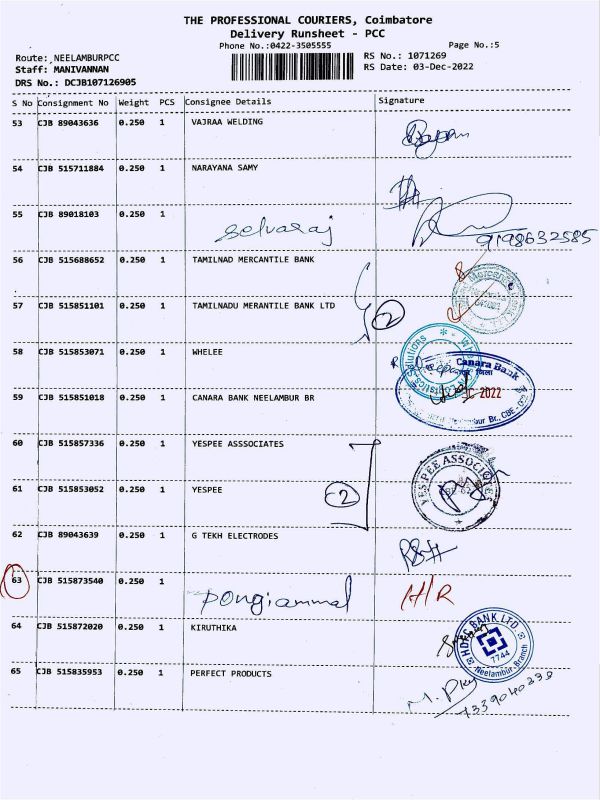 THE PROFESSIONAL COURIERS, Coimbatore
Delivery Runsheet - PCC
Phone No.:0422-3505555 Page No.:5
Route: NEELAMBURPCC RS No.: 1071269
Staff: MANIVANNAN RS Date: 03-Dec-2022
DRS No.: DCJB107126905
S No Consignment No Weight PCS Consignee Details Signature
53 CJB 89043636 0.250 1 VAJRAA WELDING
54 CJB 515711884 0.250 1 NARAYANA SAMY
55 CJB 89018103 0.250 1 Selvaraj 9198632585
56 CJB 515688652 0.250 1 TAMILNAD MERCANTILE BANK
57 CJB 515851101 0.250 1 TAMILNADU MERANTILE BANK LTD 2
58 CJB 515853071 0.250 1 WHELEE
59 CJB 515851018 0.250 1 CANARA BANK NEELAMBUR BR Canara Bank 2022
60 CJB 515857336 0.250 1 YESPEE ASSSOCIATES YES PEE ASSOCIATES
61 CJB 515853052 0.250 1 YESPEE 2
62 CJB 89043639 0.250 1 G TEKH ELECTRODES
63 CJB 515873540 0.250 1 Pongiammal H/R
64 CJB 515872020 0.250 1 KIRUTHIKA HDFC BANK LTD. 7744 Neelambur Branch
65 CJB 515835953 0.250 1 PERFECT PRODUCTS